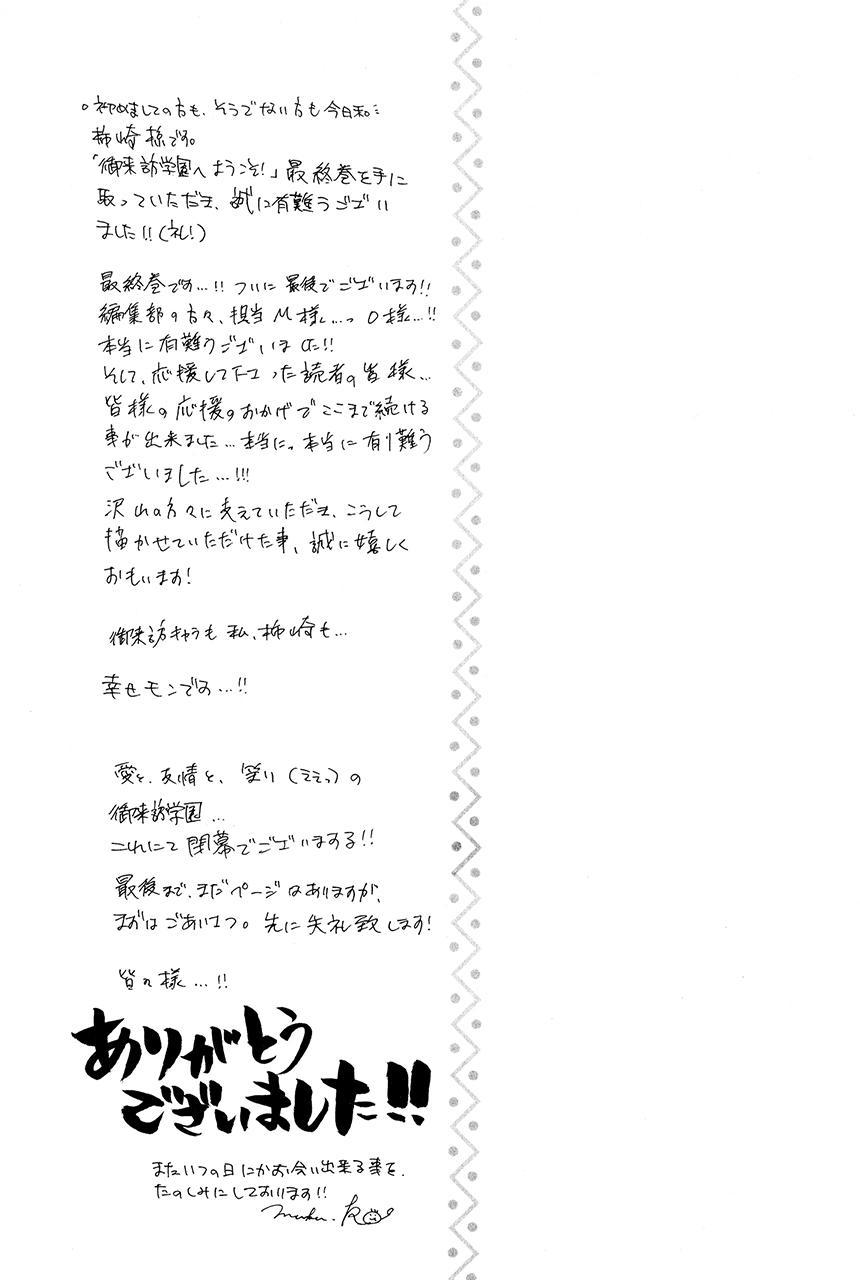 初めましての方も、そうでない方も今日和。
柿崎椋です。
「御来訪学園へようこそ!」最終巻を手に
取っていただき、誠に有難うござい
ました!!(礼!)
最終巻です…!!ついに最後でございます!!
編集部の方々、担当M様…っO様…!!
本当に有難うございました!!
そして、応援して下さった読者の皆様…
皆様の応援のおかげでここまで続ける
事が出来ました…本当に。本当に有り難う
ございました…!!!
沢山の方々に支えていただき、こうして
描かせていただけた事、誠に嬉しく
おもいます!
御来訪キャラも私、柿崎も…
幸せモンです…!!
愛と、友情と、笑い(ええっ)の
御来訪学園…
これにて閉幕でございまする!!
最後まで、まだページはありますが、
まずはごあいさつ。先に失礼致します!
皆々様…!!
ありがとう
ございました!!
またいつの日にかお会い出来る事を、
たのしみにしております!!